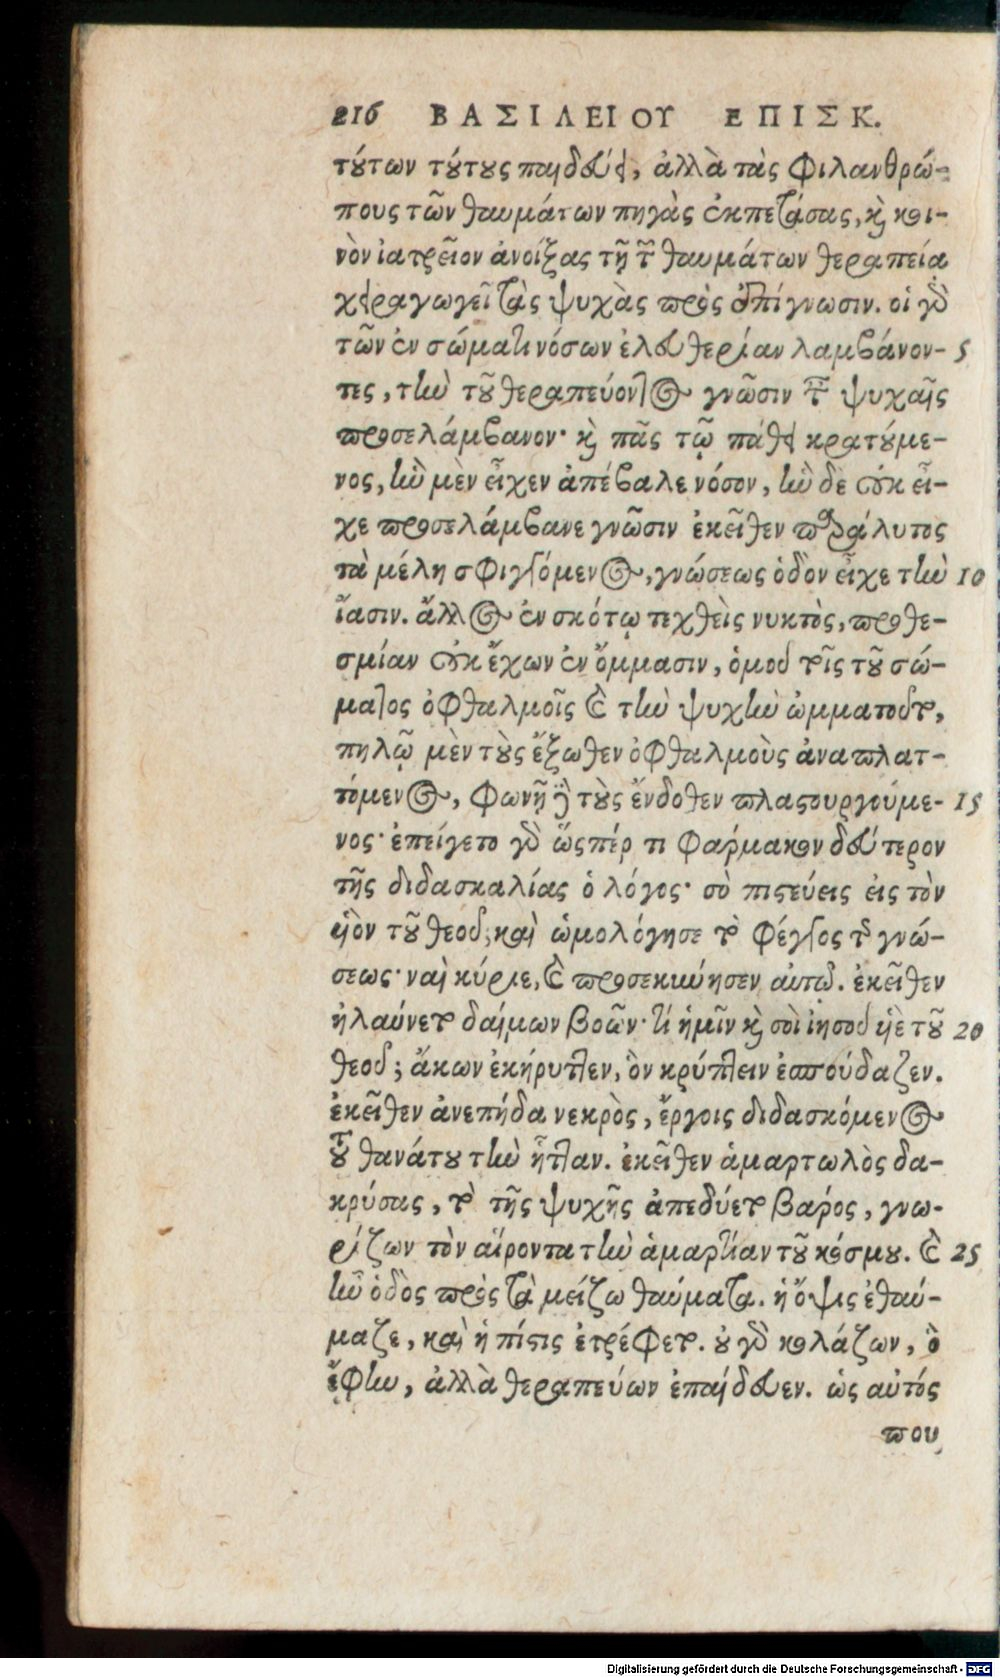 216 ΒΑΣΙΛΕΙΟΥ ΕΠΙΣΚ.
τούτων τούτους παιδεύει, ἀλλὰ τὰς φιλανθρώ-
πους τῶν θαυμάτων πηγὰς ἐκπετάσας, καὶ κοι-
νὸν ἰατρεῖον ἀνοίξας τῇ τῶν θαυμάτων θεραπεία
χειραγωγεῖ τὰς ψυχὰς πρὸς ἐπίγνωσιν. οἱ γὰρ
τῶν ἐν σώματι νόσων ἐλευθερίαν λαμβάνον- 5
τες, τὴν τοῦ θεραπεύοντος γνῶσιν ταῖς ψυχαῖς
προσελάμβανον· καὶ πᾶς τῷ πάθει κρατούμε-
νος, ἣν μὲν εἶχεν ἀπέβαλε νόσον, ἣν δε οὐκ εἶ-
χε προσελάμβανε γνῶσιν ἐκεῖθεν παράλυτος
τὰ μέλη σφιγγόμενος, γνώσεως ὁδὸν εἶχε τὴν 10
ἴασιν. ἄλλος ἐν σκότῳ τεχθεὶς νυκτὸς, προθε-
σμίαν οὐκ ἔχων ἐν ὄμμασιν, ὁμοῦ τοῖς τοῦ σώ-
ματος ὀφθαλμοῖς καὶ τὴν ψυχὴν ὠμματοῦτο,
πηλῷ μὲν τοὺς ἔξωθεν ὀφθαλμοὺς ἀναπλατ-
τόμενος, φωνῇ δὲ τοὺς ἔνδοθεν πλαστουργούμε- 15
νος· ἐπείγετο γὰρ ὥσπέρ τι φάρμακον δεύτερον
τῆς διδασκαλίας ὁ λόγος· σὺ πιστεύεις εἰς τὸν
υἱὸν τοῦ θεοῦ; καὶ ὡμολόγησε τὸ φέγγος τῆς γνώ-
σεως· ναὶ κύριε, καὶ προσεκύνησεν αὐτῷ. ἐκεῖθεν
ἠλαύνετο δαίμων βοῶν· τί ἡμῖν καὶ σοὶ ἰησοῦ υἱὲ τοῦ 20
θεοῦ; ἄκων ἐκήρυττεν, ὃν κρύπτειν ἐσπούδαζεν.
ἐκεῖθεν ἀνεπήδα νεκρὸς, ἔργοις διδασκόμενος
τοῦ θανάτου τὴν ἧτταν. ἐκεῖθεν ἁμαρτωλὸς δα-
κρύσας, τὸ τῆς ψυχῆς ἀπεδύετο βάρος, γνω-
ρίζων τὸν αἴροντα τὴν ἁμαρτίαν τοῦ κόσμου. καὶ 25
ἦν ὁδὸς πρὸς τὰ μείζω θαύματα. ἡ ὄψις ἐθαύ-
μαζε, καὶ ἡ πίστις ἐτρέφετο. οὐ γὰρ κολάζων, ὃ
ἔφην, ἀλλὰ θεραπεύων ἐπαίδευεν. ὡς αὐτός
που
Digitalisierung gefördert durch die Deutsche Forschungsgemeinschaft - DFG